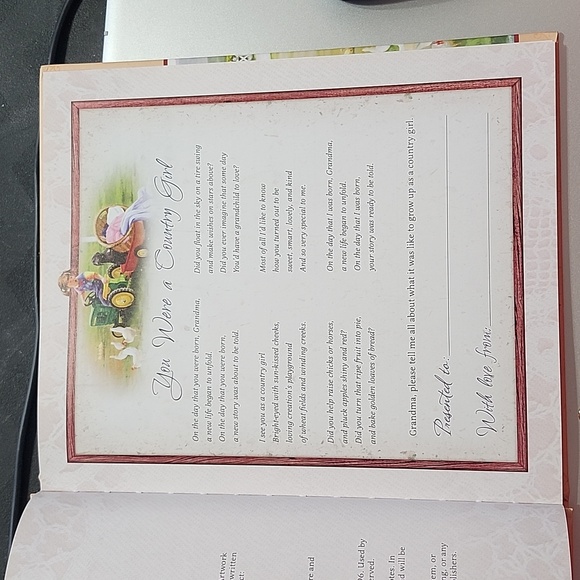 You Were a Country Girl
On the day that you were born, Grandma,
a new life began to unfold.
On the day that you were born,
a new story was about to be told.
I see you as a country girl
Bright-eyed with sun-kissed cheeks,
loving creation's playground
of wheat fields and winding creeks.
Did you help raise chicks or horses,
and pluck apples shiny and red?
Did you turn that ripe fruit into pie,
and bake golden loaves of bread?
Did you float in the sky on a tire swing
and make wishes on stars above?
Did you ever imagine that some day
You'd have a grandchild to love?
Most of all I'd like to know
how you turned out to be
sweet, smart, lovely, and kind
And so very special to me.
On the day that I was born, Grandma,
a new life began to unfold.
On the day that I was born,
your story was ready to be told.
Grandma, please tell me all about what it was like to grow up as a country girl.
Presented to:
With love from:
written
re and
Used by
served.
In
d will be
or
or any
lishers.